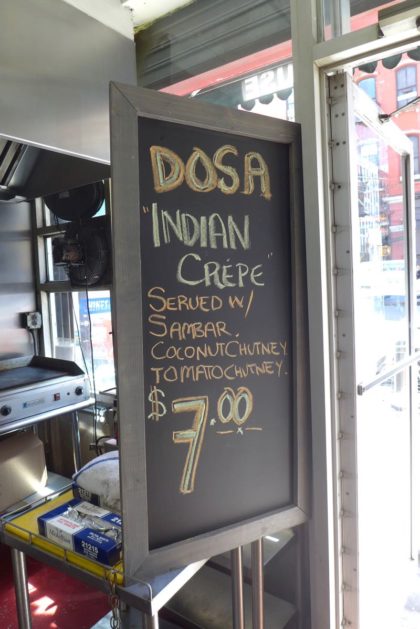 DOSA
"INDIAN
CRÊPE"
SERVED W/
SAMBAR.
COCONUT CHUTNEY.
TOMATO CHUTNEY.
$7.00
21215